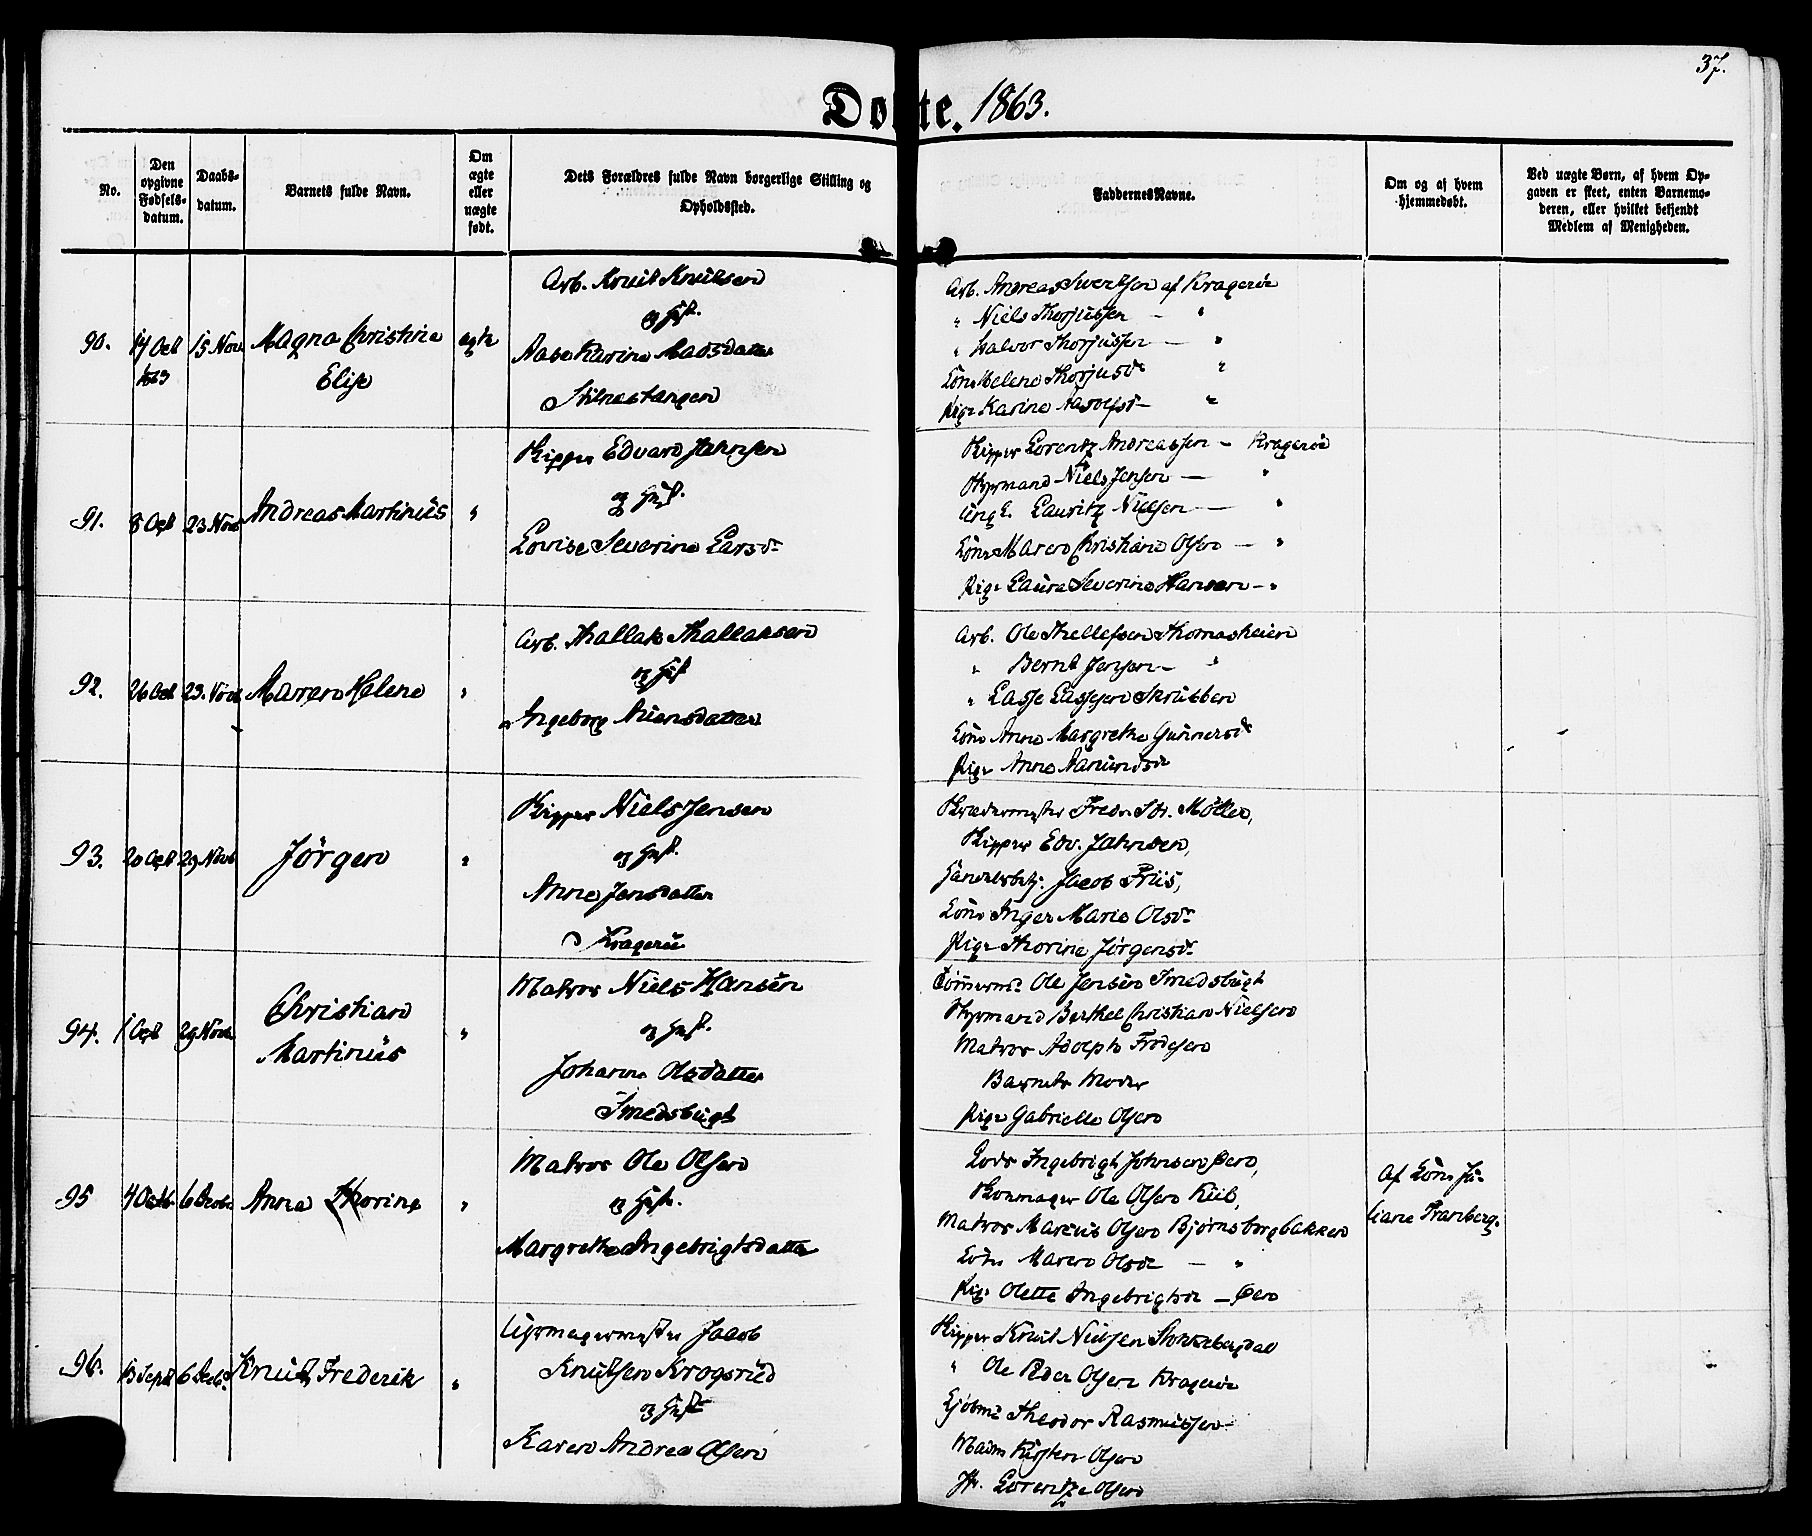 37.
Døbte. 1863.
No.
Den opgivne Fødselsdatum.
Daabsdatum.
Barnets fulde Navn.
Om ægte eller uægte født.
Dets Forældres fulde Navn borgerlige Stilling og Opholdssted.
Faddernes Navne.
Om og af hvem hjemmedøbt.
Ved uægte Børn, af hvem Opgaven er skeet, enten Barnemoderen, eller hvilket bekjendt Medlem af Menigheden.
90. 17 Oct 1863 15 Nov Magna Christine Elise ægte
Arb. Knut Knutsen
og Hust.
Aase Karine Madsdatter
Stilnestangen
Arb. Andreas Svertsen af Kragerøe
" Niels Thorjussen — "
" Halvor Thorjussen — "
Kone Helene Thorjusdr "
Pige Karine Aadolfsdr — "
91. 8 Oct 23 Nov Andreas Martinus "
Skipper Edvard Jahnsen
og Hust.
Lovise Severine Larsdr
Skipper Lorentz Andreassen — Kragerøe
Styrmand Niels Jensen — "
Ungk. Lauritz Nielsen — "
Kone Maren Christiane Olsen — "
Pige Laura Severine Hansen — "
92. 26 Oct 23. Nov Maren Helene "
Arb. Thallak Thallaksen
og Hust
Ingeborg Auensdatter
Arb. Ole Thellefsen Thomasheien
" Bernt Jensen — "
" Lasse Lassesen Skrubben
Kone Anne Margrethe Gunnersdr
Pige Anne Aanundsdr
93. 20 Oct 29 Novb Jörgen "
Skipper Niels Jensen
og Hust.
Anne Jensdatter
Kragerøe
Skrædermester Fredr. Th. Möller,
Skipper Edv. Jahnsen,
Handelsbetj. Jacob Friis,
Kone Inger Marie Olsdr
Pige Thorine Jörgensdr
94. 1 Oct 29 Novb Christian Martinus "
Matros Niels Hansen
og Hust.
Johanne Olsdatter
Smedsbugt
Tömmermd Ole Jensen Smedsbugt
Styrmand Berthel Christian Nielsen
Matros Adolph Frodesen
Barnets Moder
Pige Gabrielle Olsen
95 4 Octbr 6 Decbr Anne Thorine "
Matros Ole Olsen
og Hust.
Margrethe Ingebrigtsdatter
Lods Ingebrigt Johnsen Øen,
Skomager Ole Olsen Kiil,
Matros Marcus Olsen Bjørnsborgbakken
Kone Maren Olsdr — "
Pige Olette Ingebrigtsdr — Øen
Af Kone Juliane Tranberg.
96. 13 Sept 6 Decbr Knut Frederik "
Uhrmagermester Jacob
Knutsen Krogsrud
og Hust
Karen Andrea Olsen
Skipper Knut Nielsen Stokkebergdal
" Ole Peder Olsen Kragerøe
Kjöbmd Theodor Rasmussen
Madm Kirsten Olsen
Jfr. Lorentze Olsen